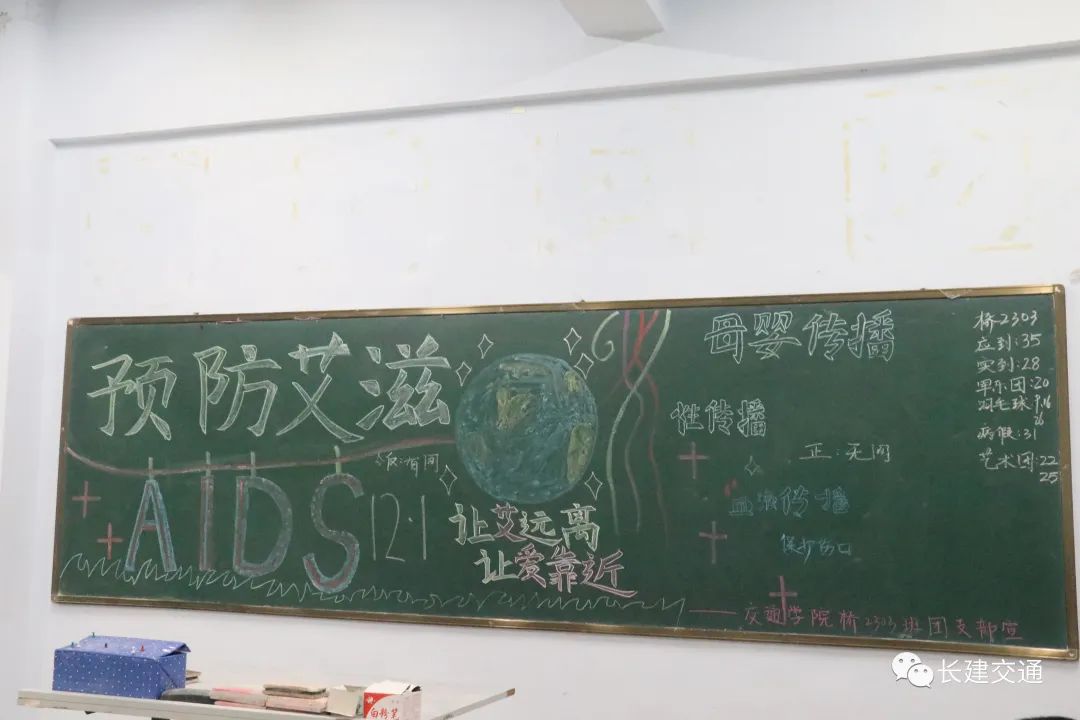 预防艾滋
反:有间
AIDS
12.1
让艾远离
让爱靠近
母婴传播
性传播
正:无间
血液传播
保护伤口
——交通学院桥2303班团支部宣
桥2303
应到:35
实到:28
军乐团:20
羽毛球:9.16
26
病假:31
艺术团:22
25
白粉笔
长建交通